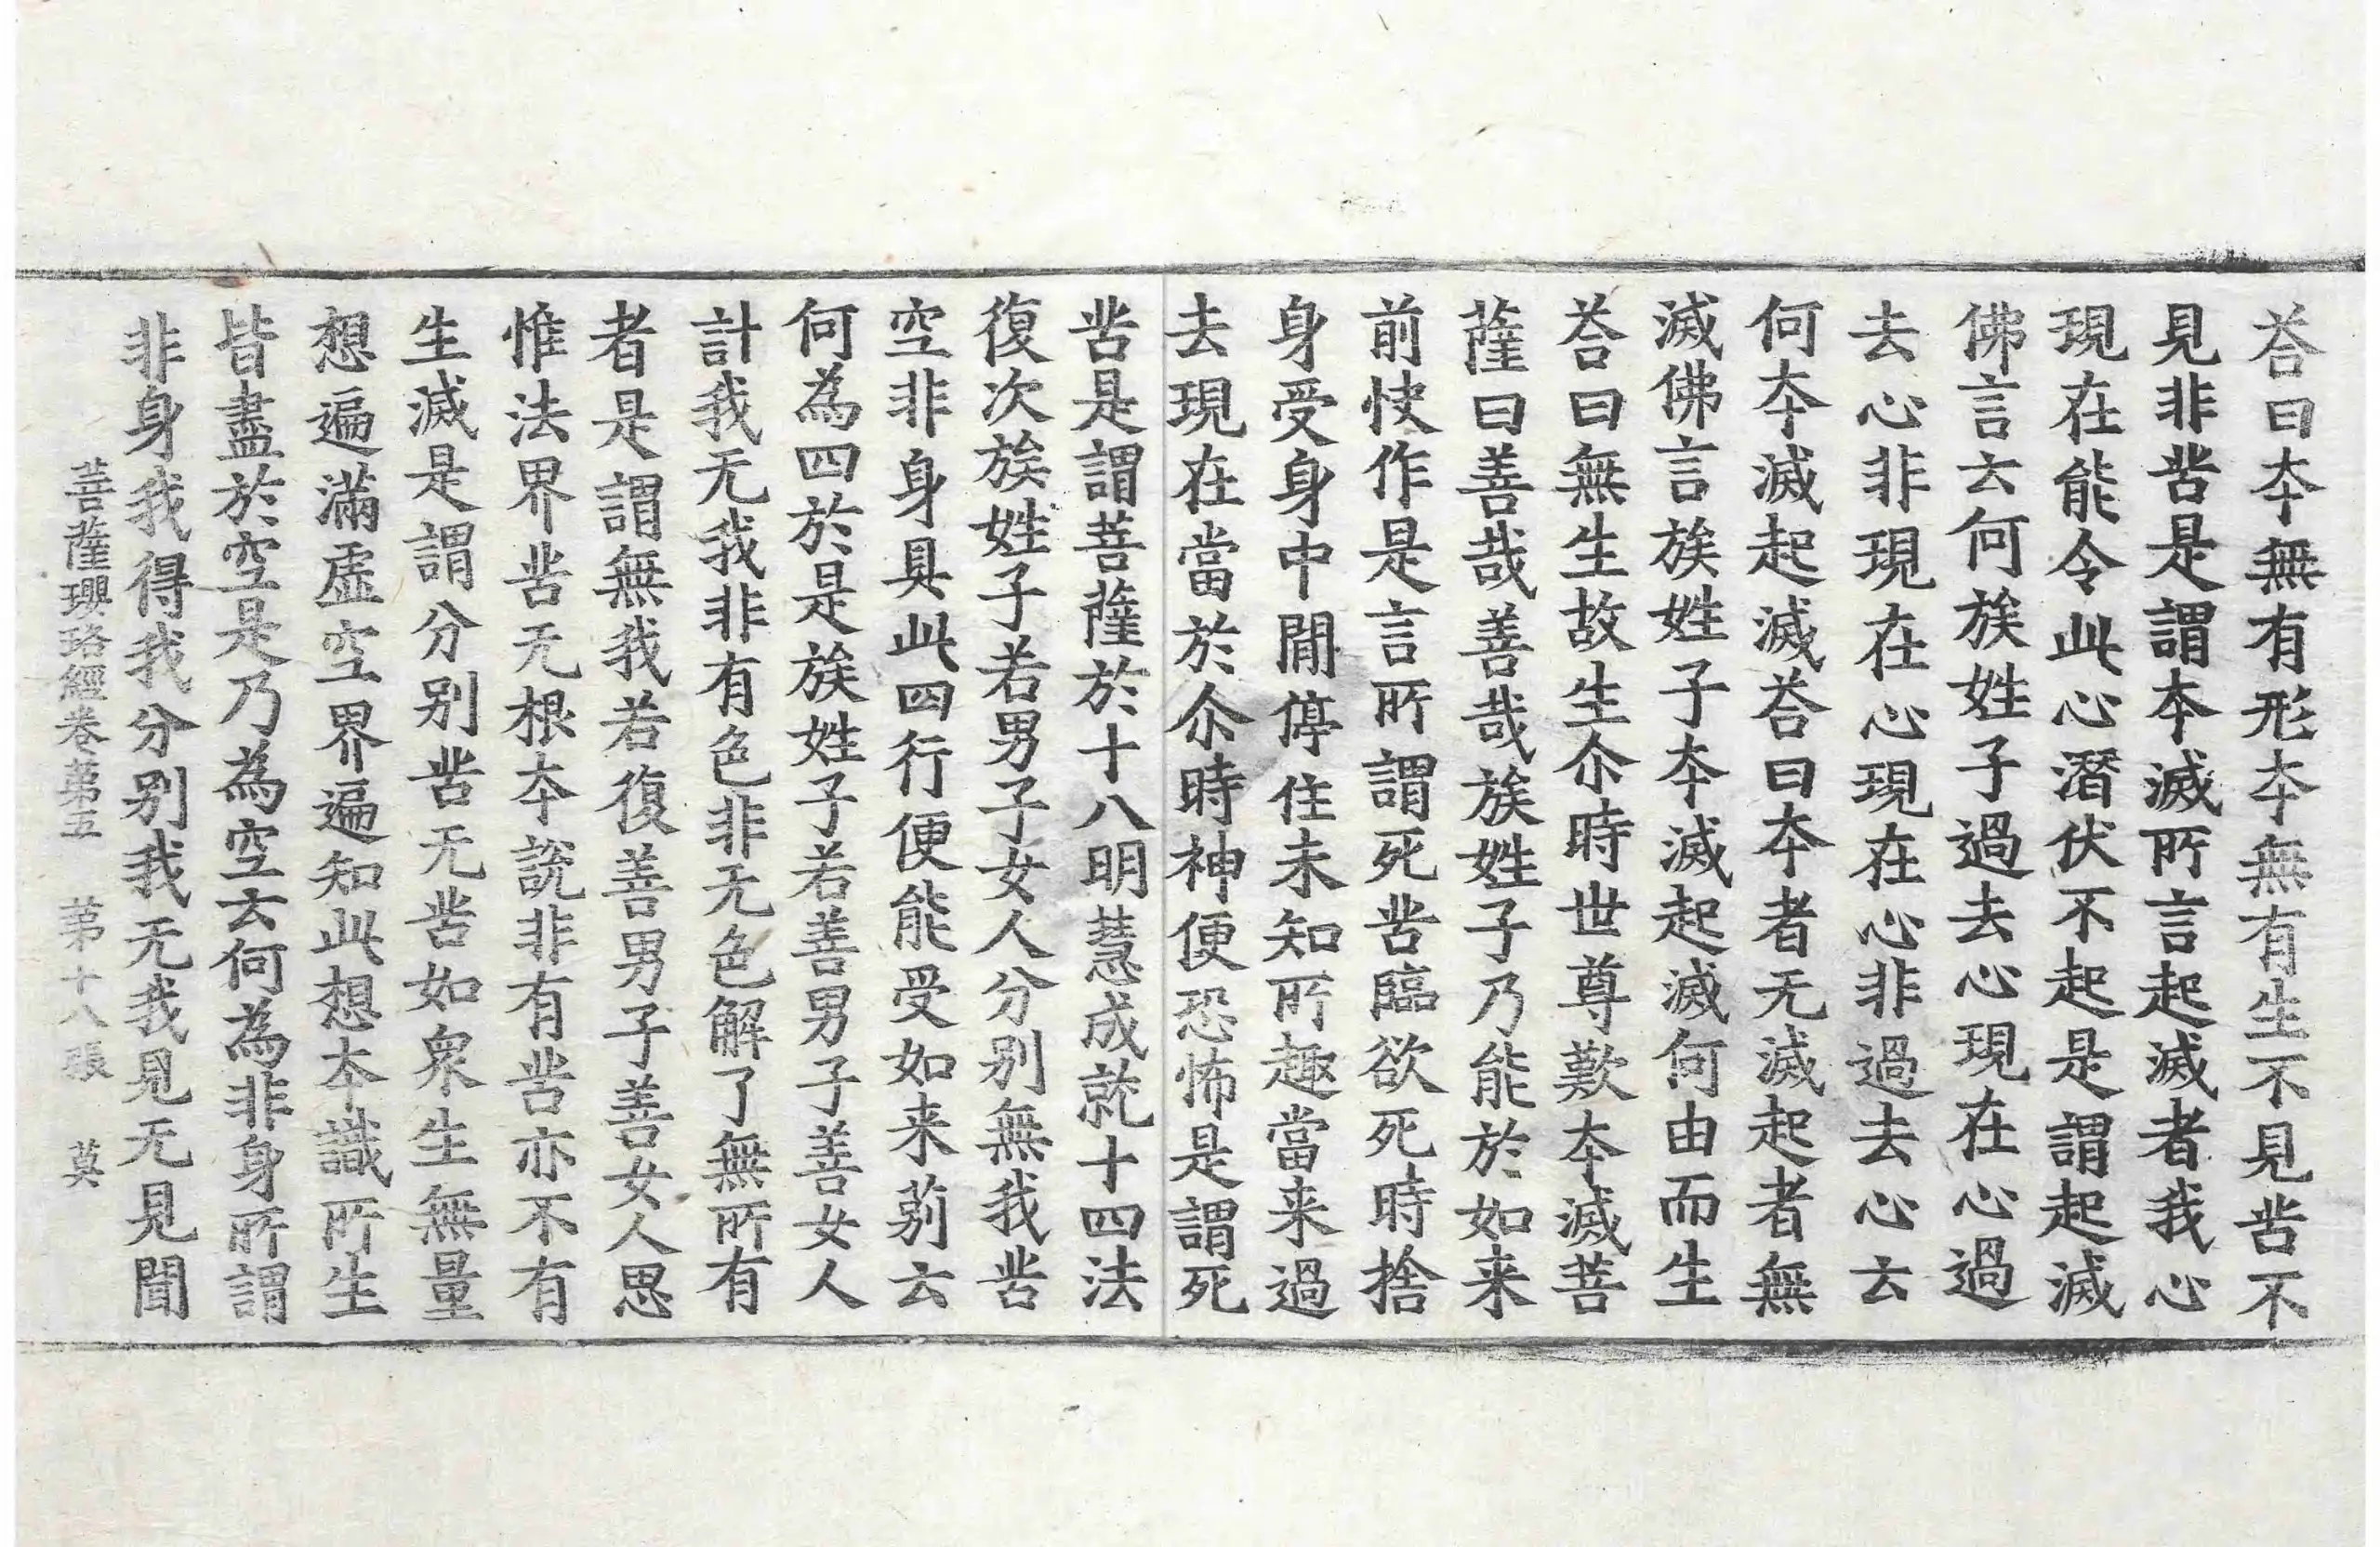 荅曰夲無有形夲無有生不見苦不
見非苦是謂夲滅所言起滅者我心
現在能令此心潛伏不起是謂起滅
佛言云何族姓子過去心現在心過
去心非現在心現在心非過去心云
何夲滅起滅荅曰夲者无滅起者無
滅佛言族姓子夲滅起滅何由而生
荅曰無生故生尒時世尊歎夲滅菩
薩曰善哉善哉族姓子乃能於如来
前快作是言所謂死苦臨欲死時捨
身受身中閒停住未知所趣當来過
去現在當於尒時神便恐怖是謂死
苦是謂菩薩於十八明慧成就十四法
復次族姓子若男子女人分别無我苦
空非身具此四行便能受如来莂云
何為四於是族姓子若善男子善女人
計我无我非有色非无色解了無所有
者是謂無我若復善男子善女人思
惟法界苦无根夲說非有苦亦不有
生滅是謂分别苦无苦如衆生無量
想遍滿虛空界遍知此想夲識所生
皆盡於空是乃為空云何為非身所謂
非身我得我分别我无我見无見聞
菩薩瓔珞經卷第五 第十八張 莫